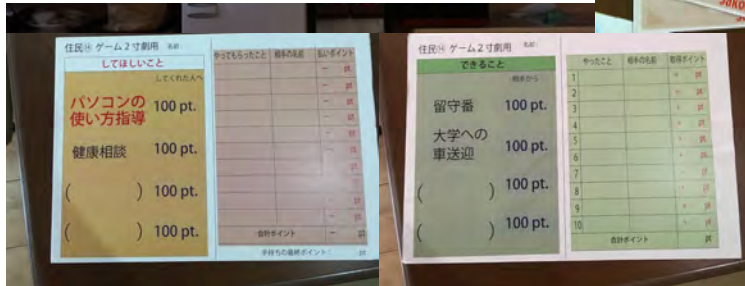 住民⑭ ゲーム2寸劇用 名前:
してほしいこと
してくれた人へ
パソコンの
使い方指導 100 pt.
健康相談 100 pt.
( ) 100 pt.
( ) 100 pt.
やってもらったこと 相手の名前 払いポイント
− pt
− pt
− pt
− pt
− pt
− pt
− pt
− pt
− pt
− pt
合計ポイント − pt
手持ちの最終ポイント: pt
住民⑭ ゲーム2寸劇用 名前:
できること
相手から
留守番 100 pt.
大学への
車送迎 100 pt.
( ) 100 pt.
( ) 100 pt.
やったこと 相手の名前 取得ポイント
1 + pt
2 + pt
3 + pt
4 + pt
5 + pt
6 + pt
7 + pt
8 + pt
9 + pt
10 + pt
合計ポイント pt